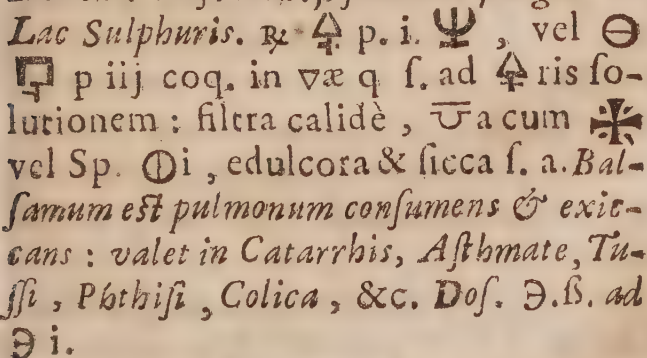 Lac Sulphuris. ℞ 🜍 p. i. 🜪 Ψ , vel ⊖
🜿 p iij coq. in ▽æ q ſ. ad 🜍 ris ſo-
lutionem : filtra calidè , a cum ✠
vel Sp. ⦶i , edulcora & ſicca ſ. a. Bal-
ſamum eſt pulmonum conſumens & exic-
cans : valet in Catarrhis, Aſthmate, Tu-
ſſi , Phthiſi , Colica , &c. Doſ. ℈.ß. ad
℈ i.